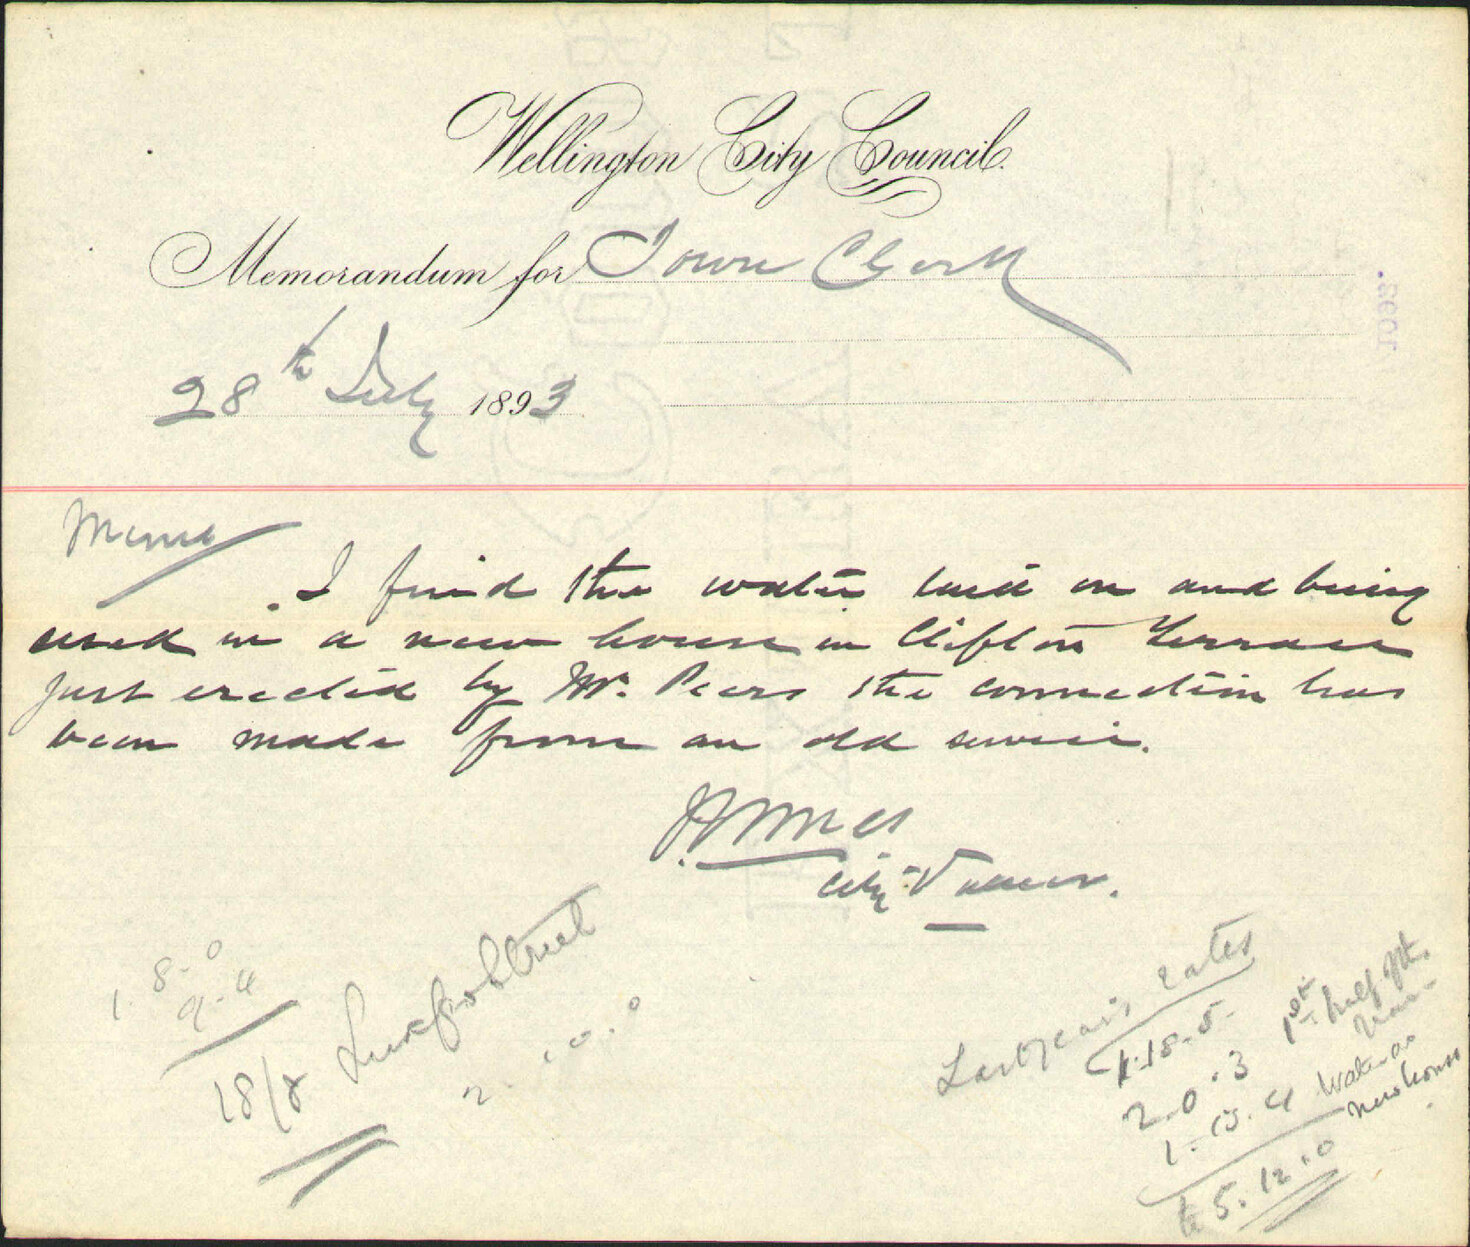 Wellington City Council.
Memorandum for Town Clerk
28th July 1893
Memo
I find the water laid on and being
used in a new house in Clifton Terrace
just erected by Mr. Pears the connection has
been made from an old service.
City Valuer.
1. 8. 0
9. 4
18/8
Street
2. 10. 0
Last year's rates
1. 18. 5.
2. 0. 3 1st half yr.
1. 13. 4 Water on
new house
£5. 12. 0
1093.